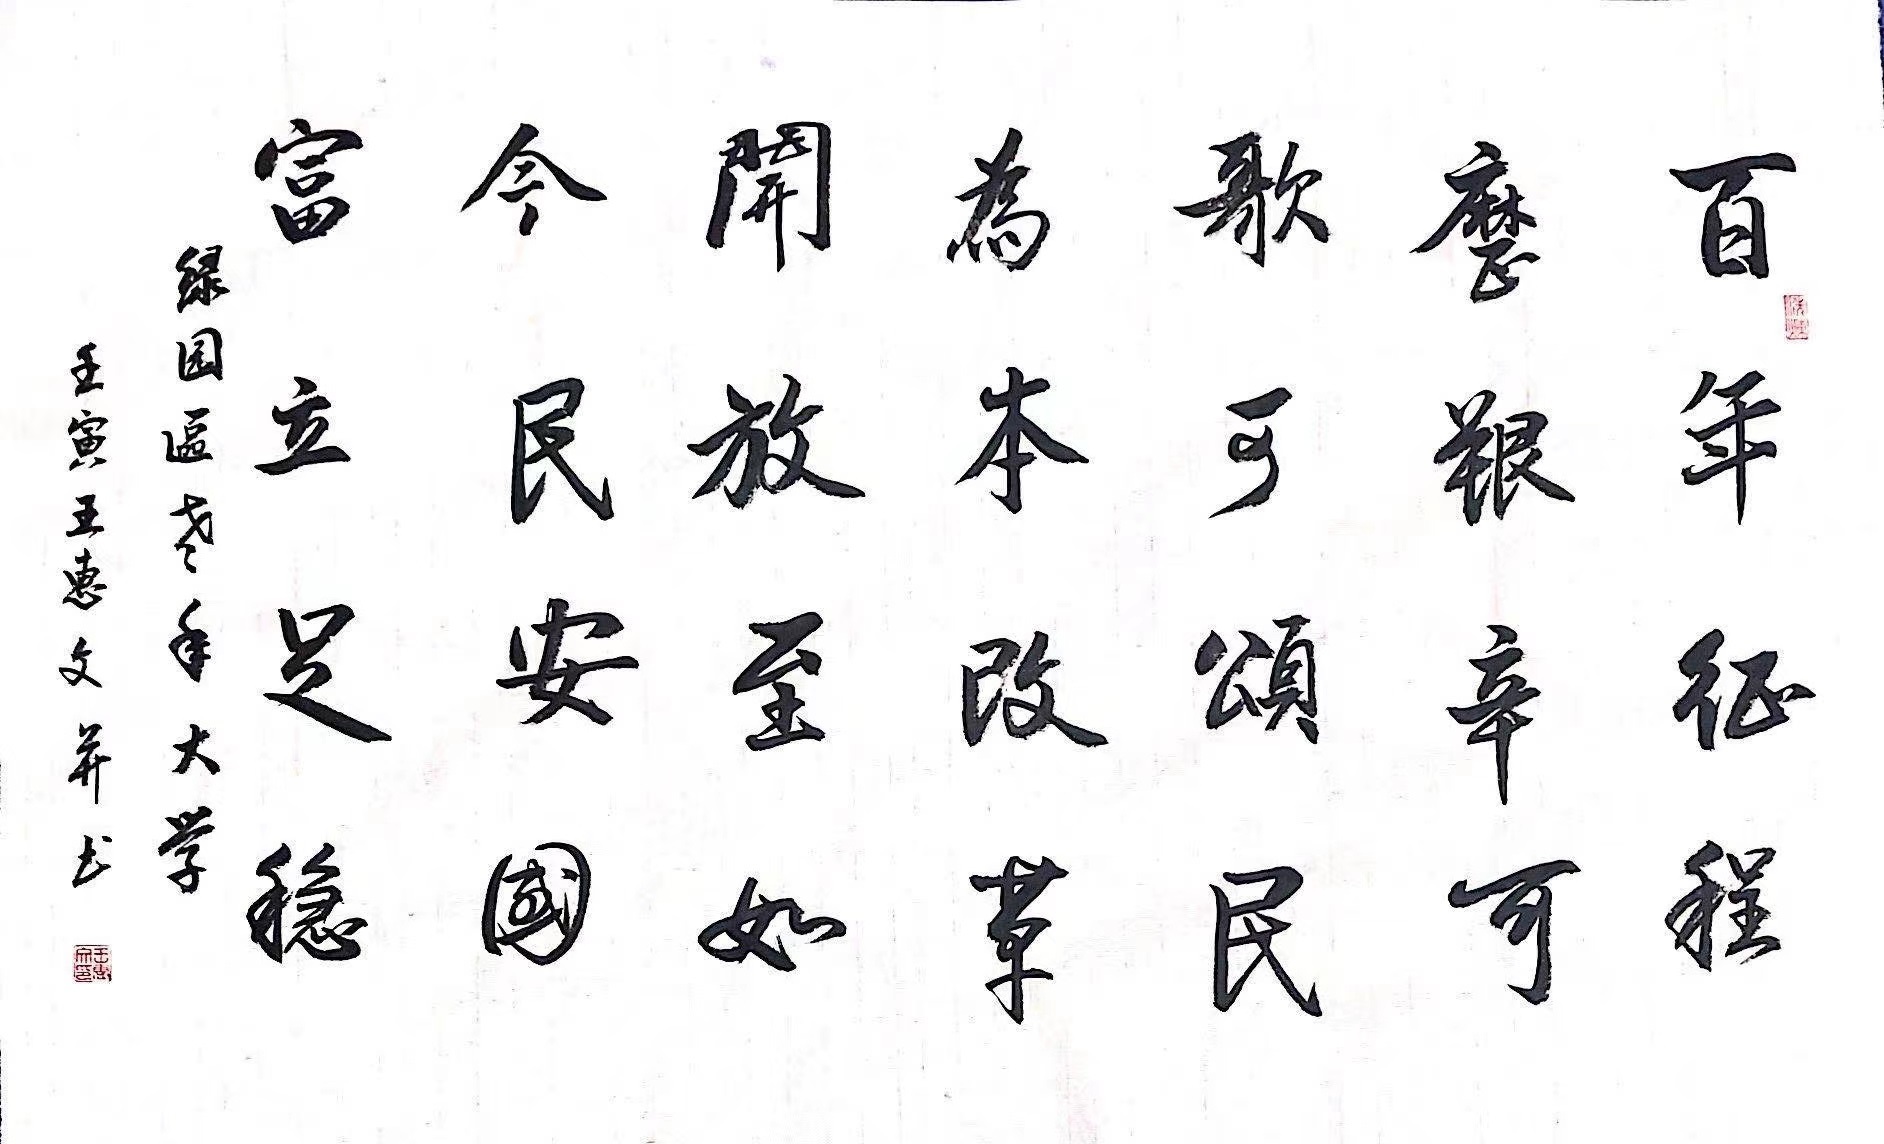 百年征程
歷艱辛可
歌可頌民
為本改革
開放至如
今民安國
富立足穩
绿园區老年大学
壬寅王惠文并书